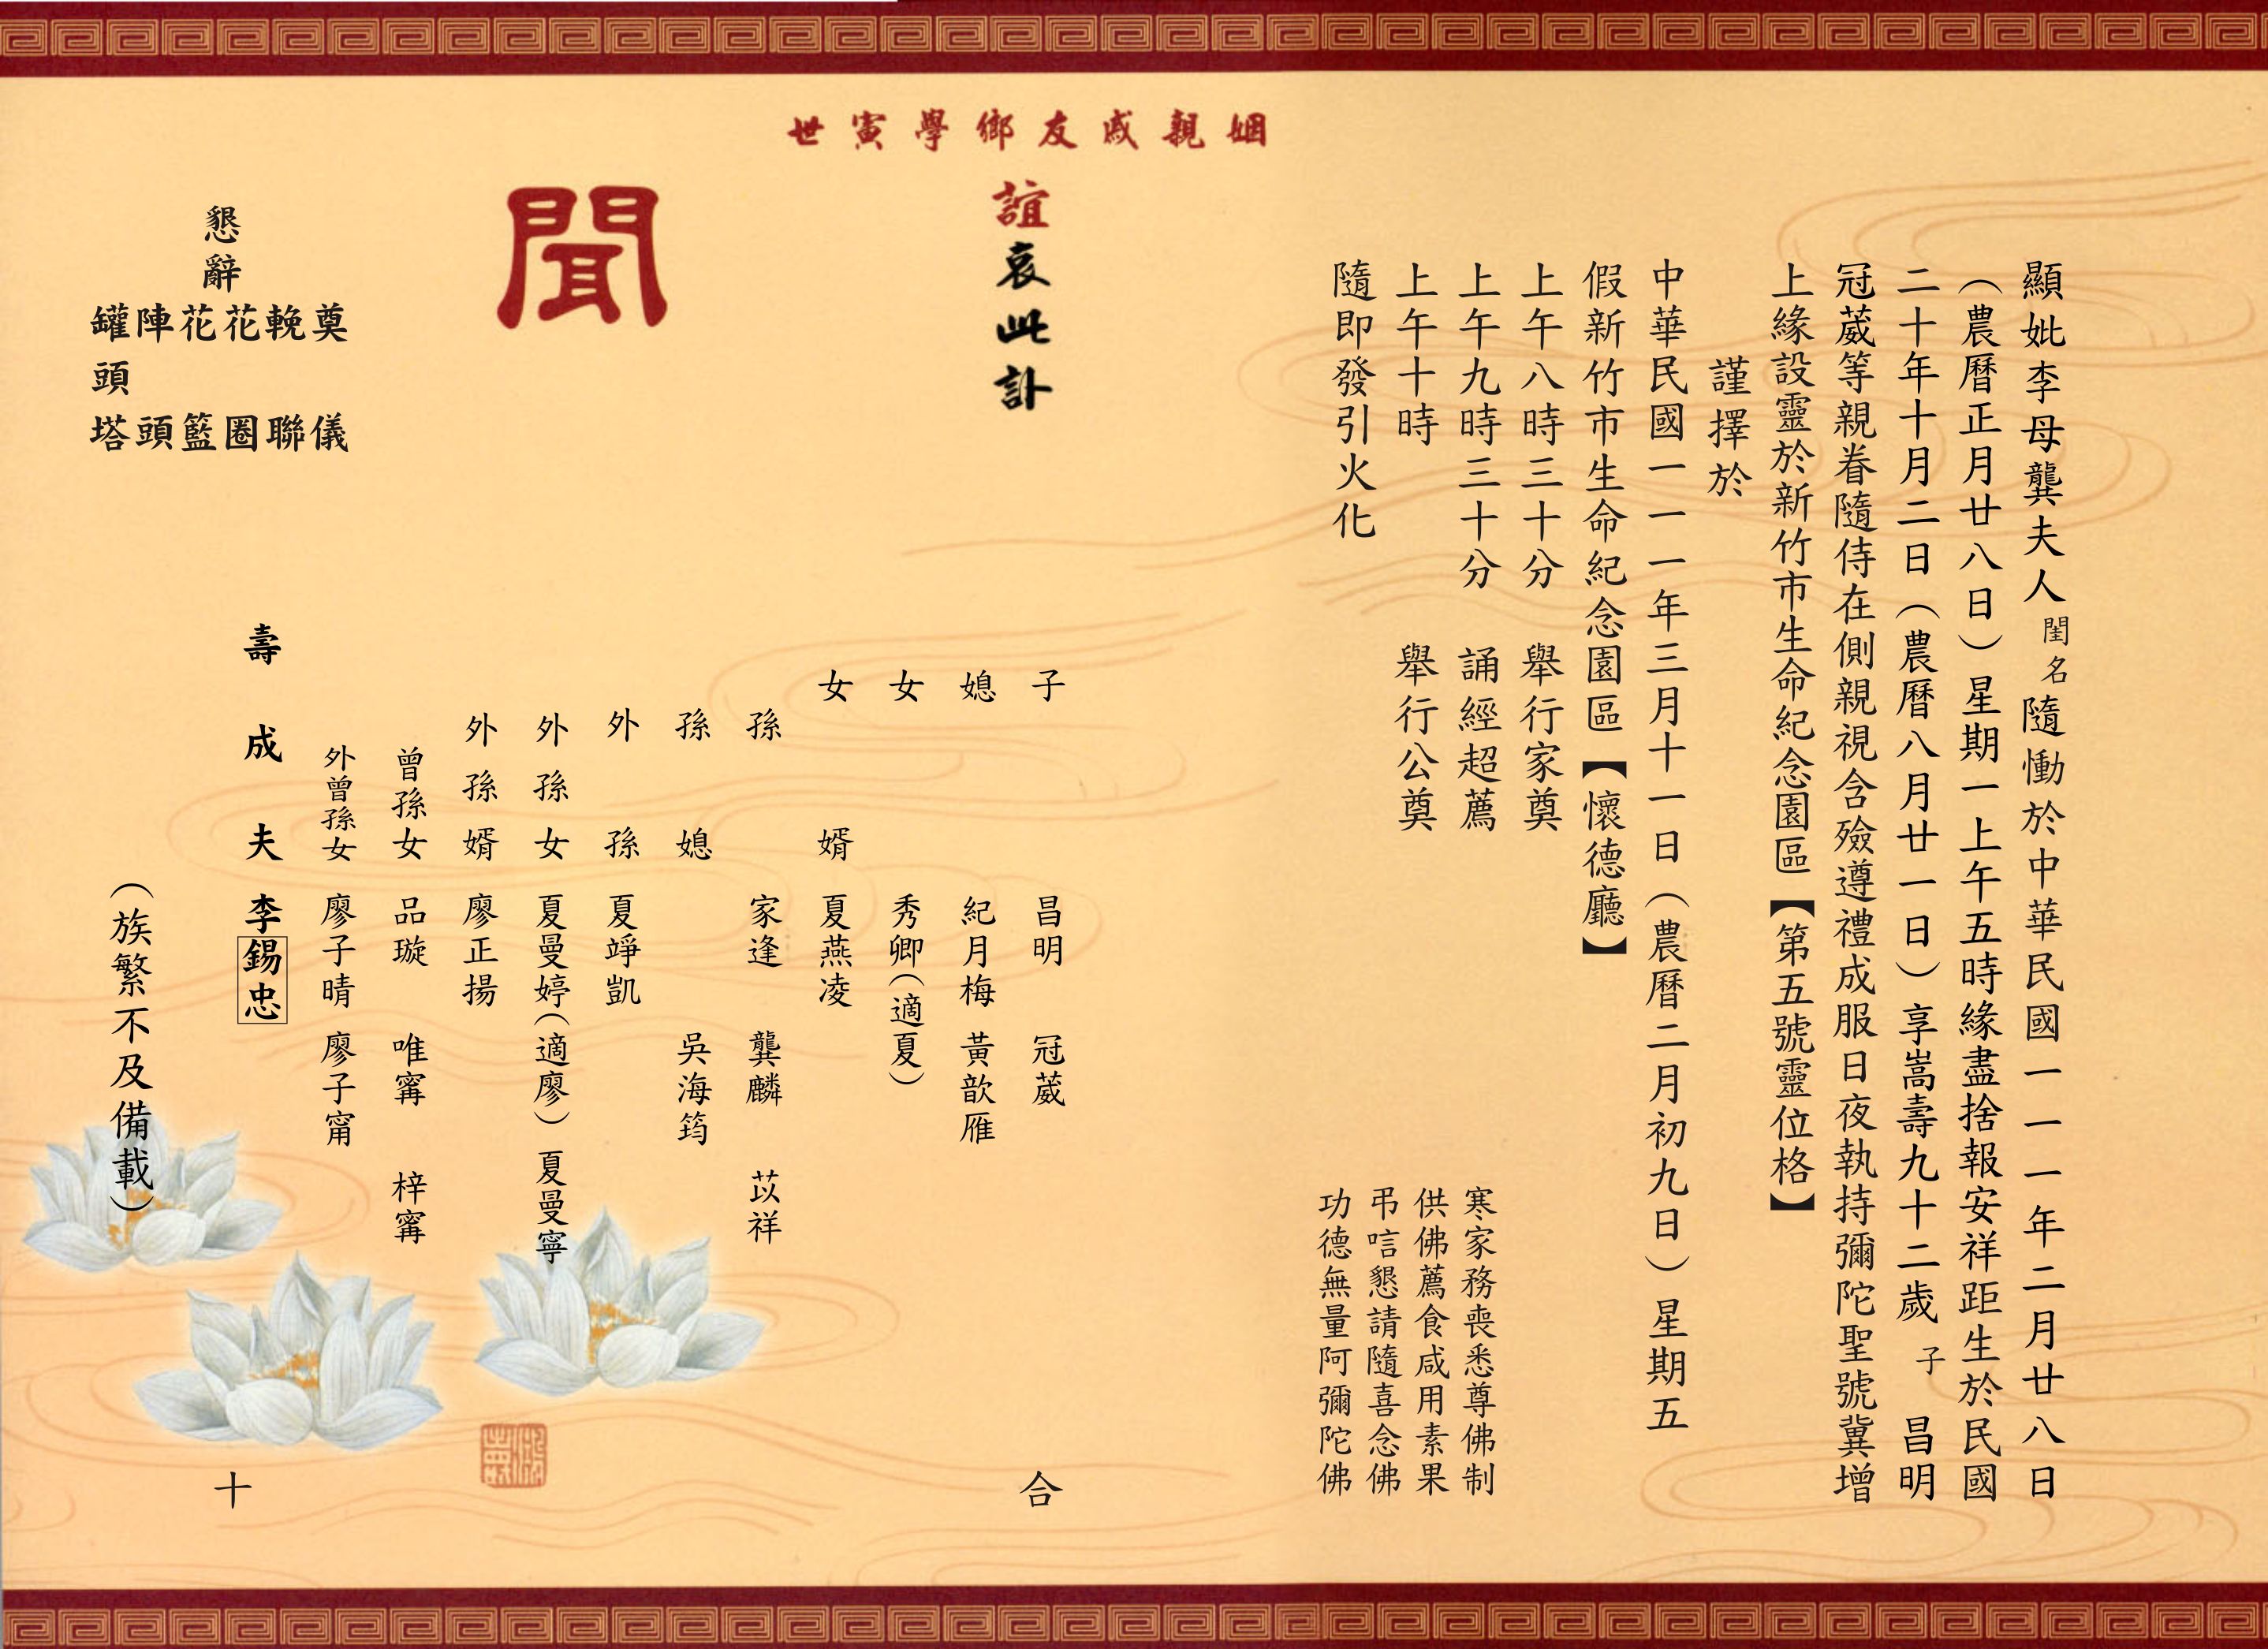 顯妣李母龔夫人閨名隨慟於中華民國一一一年二月廿八日
（農曆正月廿八日）星期一上午五時緣盡捨報安祥距生於民國
二十年十月二日（農曆八月廿一日）享嵩壽九十二歲子昌明
冠葳等親眷隨侍在側親視含殮遵禮成服日夜執持彌陀聖號冀增
上緣設靈於新竹市生命紀念園區【第五號靈位格】
謹擇於
中華民國一一一年三月十一日（農曆二月初九日）星期五
假新竹市生命紀念園區【懷德廳】
上午八時三十分 舉行家奠
上午九時三十分 誦經超薦
上午十時 舉行公奠
隨即發引火化
寒家務喪悉尊佛制
供佛薦食咸用素果
弔唁懇請隨喜念佛
功德無量阿彌陀佛
姻親戚友鄉學寅世
誼哀此訃
聞
子 昌明 冠葳
媳 紀月梅 黃歆雁
女 秀卿（適夏）
女婿 夏燕凌
孫 家逢 龔麟 苡祥
孫媳 吳海筠
外孫 夏竫凱
外孫女 夏曼婷（適廖） 夏曼寧
外孫婿 廖正揚
曾孫女 品璇 唯甯 梓甯
外曾孫女 廖子晴 廖子甯
壽成夫 李錫忠
（族繁不及備載）
合十
懇辭
奠儀
輓聯
花圈
花籃
陣頭
罐頭塔